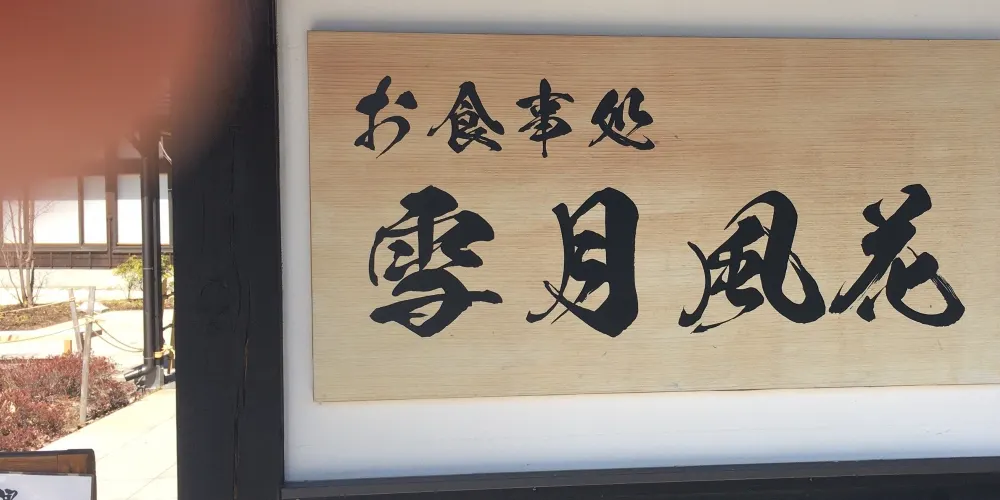 お食事処
雪月風花